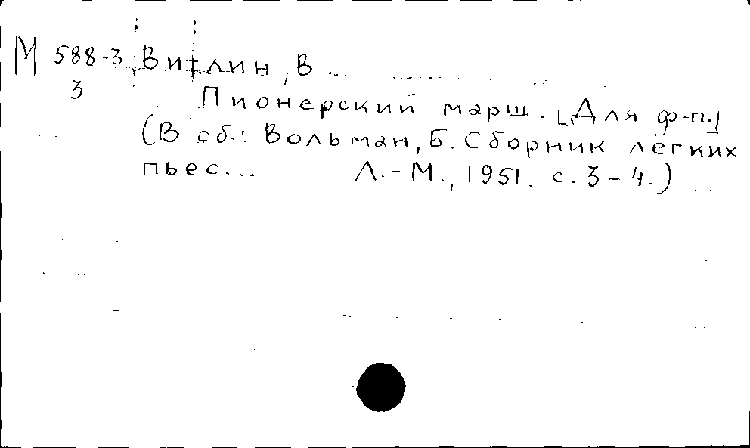 М 588-3 Витлин, В
3
Пионерский марш. [Для ф-п.]
(В сб.: Вольман, Б. Сборник лёгких
пьес... Л.-М., 1951. с. 3-4.)